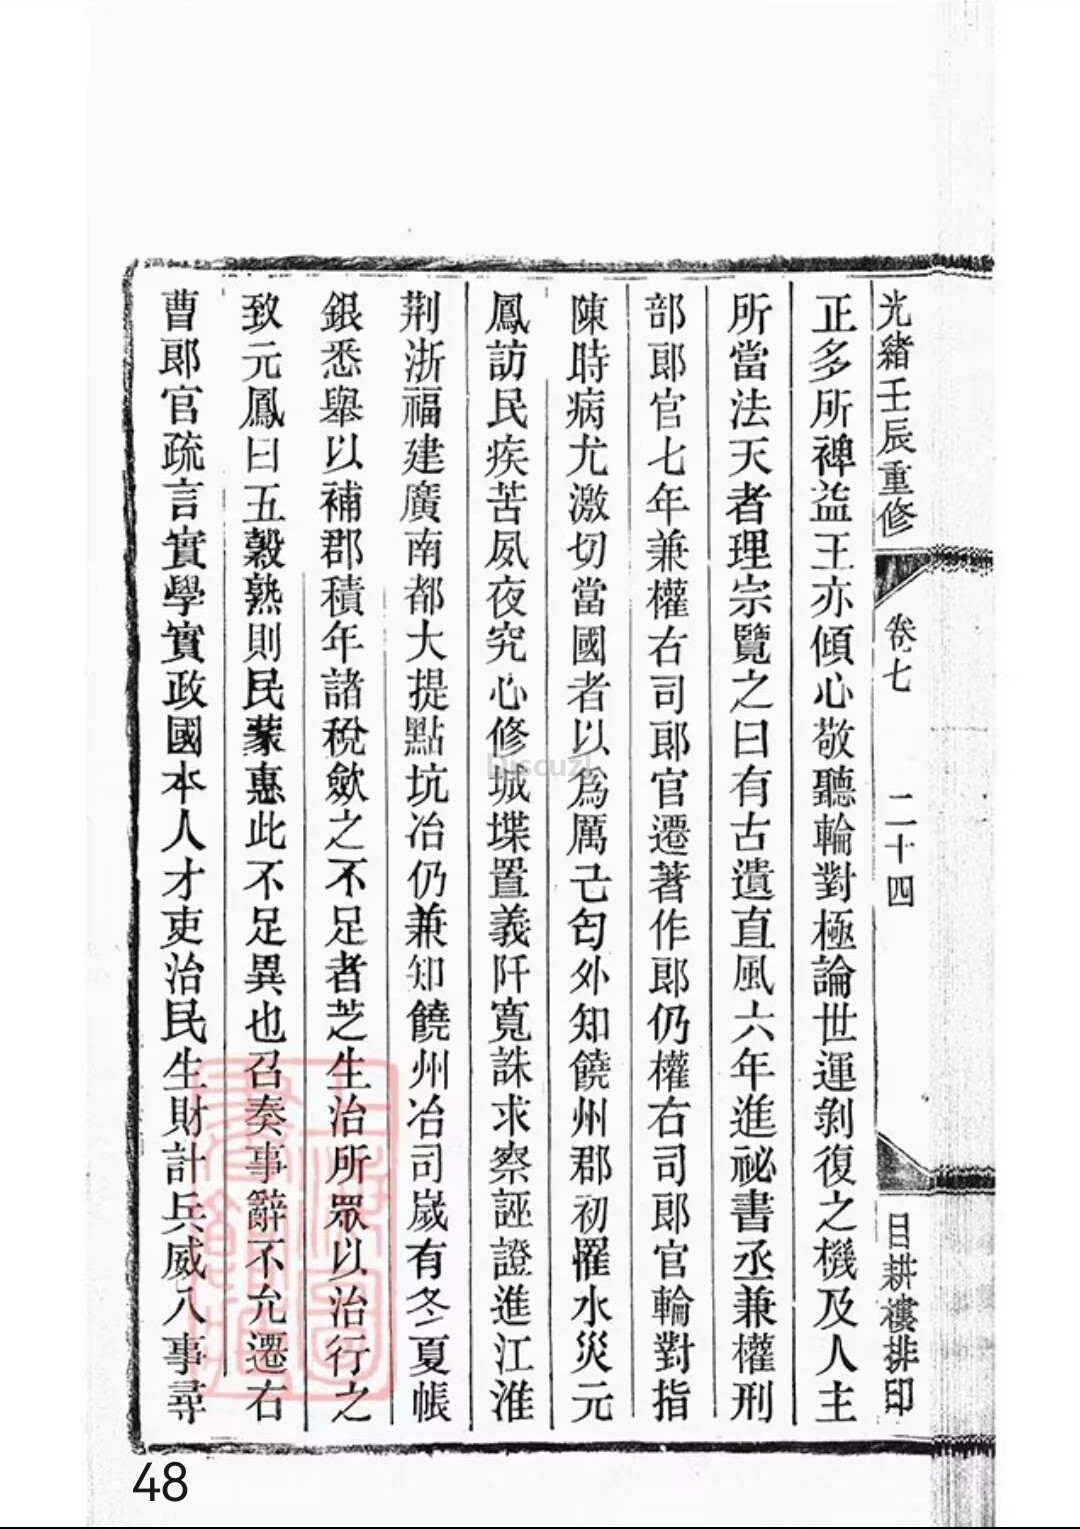 光緒壬辰重修
卷七
二十四
目耕樓排印
正多所裨益王亦傾心敬聽輪對極論世運剝復之機及人主
所當法天者理宗覽之曰有古遺直風六年進祕書丞兼權刑
部郎官七年兼權右司郎官遷著作郎仍權右司郎官輪對指
陳時病尤激切當國者以爲厲己匄外知饒州郡初罹水災元
鳳訪民疾苦夙夜究心修城堞置義阡寬誅求察誣證進江淮
荆浙福建廣南都大提點坑冶仍兼知饒州冶司嵗有冬夏帳
銀悉舉以補郡積年諸稅歛之不足者芝生治所眾以治行之
致元鳳曰五穀熟則民蒙惠此不足異也召奏事辭不允遷右
曹郎官疏言實學實政國本人才吏治民生財計兵威八事尋
Discuz!
48